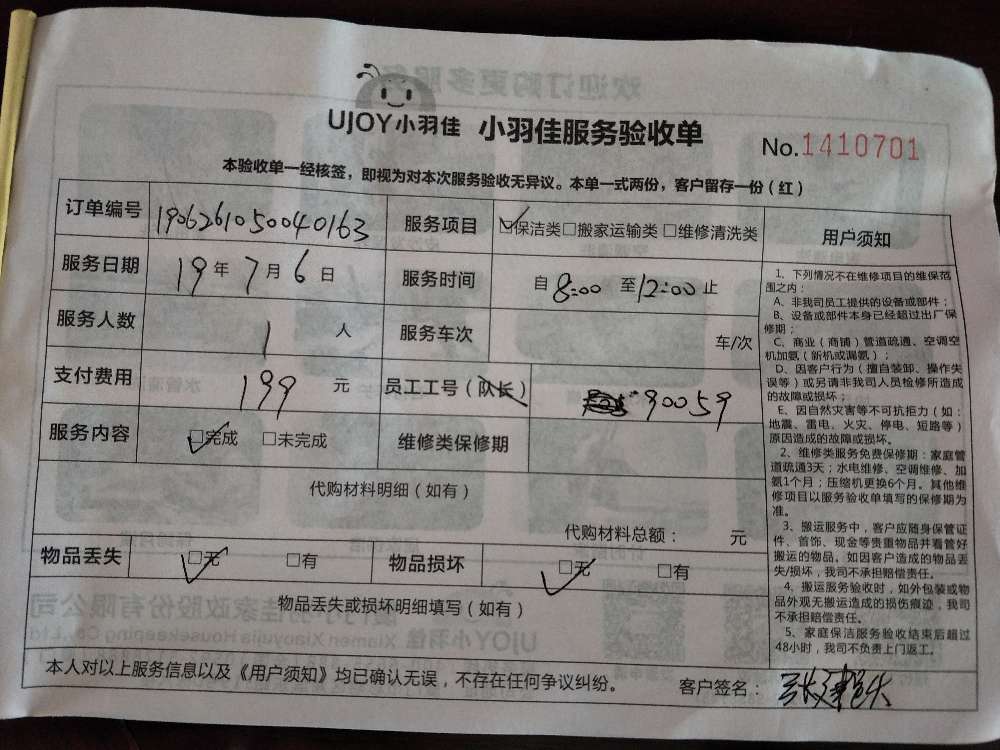 UJOY小羽佳 小羽佳服务验收单
No.1410701
本验收单一经核签，即视为对本次服务验收无异议。本单一式两份，客户留存一份（红）
订单编号 1906261050040163 服务项目 保洁类 搬家运输类 维修清洗类
服务日期 19年7月6日 服务时间 自8:00至12:00止
服务人数 1人 服务车次 车/次
支付费用 199元 员工工号（队长） 90059
服务内容 完成 未完成 维修类保修期
代购材料明细（如有）
代购材料总额： 元
物品丢失 无 有 物品损坏 无 有
物品丢失或损坏明细填写（如有）
用户须知
1、下列情况不在维修项目的维保范
围之内：
A、非我司员工提供的设备或部件；
B、设备或部件本身已经超过出厂保
修期；
C、商业（商铺）管道疏通、空调空
机加氨（新机或漏氨）；
D、因客户行为（擅自装卸、操作失
误等）或另请非我司人员检修所造成
的故障或损坏；
E、因自然灾害等不可抗拒力（如：
地震、雷电、火灾、停电、短路等）
原因造成的故障或损坏。
2、维修类服务免费保修期：家庭管
道疏通3天；水电维修、空调维修、加
氨1个月；压缩机更换6个月。其他维
修项目以服务验收单填写的保修期为
准。
3、搬运服务中，客户应随身保管证
件、首饰、现金等贵重物品并看管好
搬运的物品。如因客户造成的物品丢
失/损坏，我司不承担赔偿责任。
4、搬运服务验收时，如外包装或物
品外观无搬运造成的损伤痕迹，我司
不承担赔偿责任。
5、家庭保洁服务验收结束后超过
48小时，我司不负责上门返工。
本人对以上服务信息以及《用户须知》均已确认无误，不存在任何争议纠纷。 客户签名：